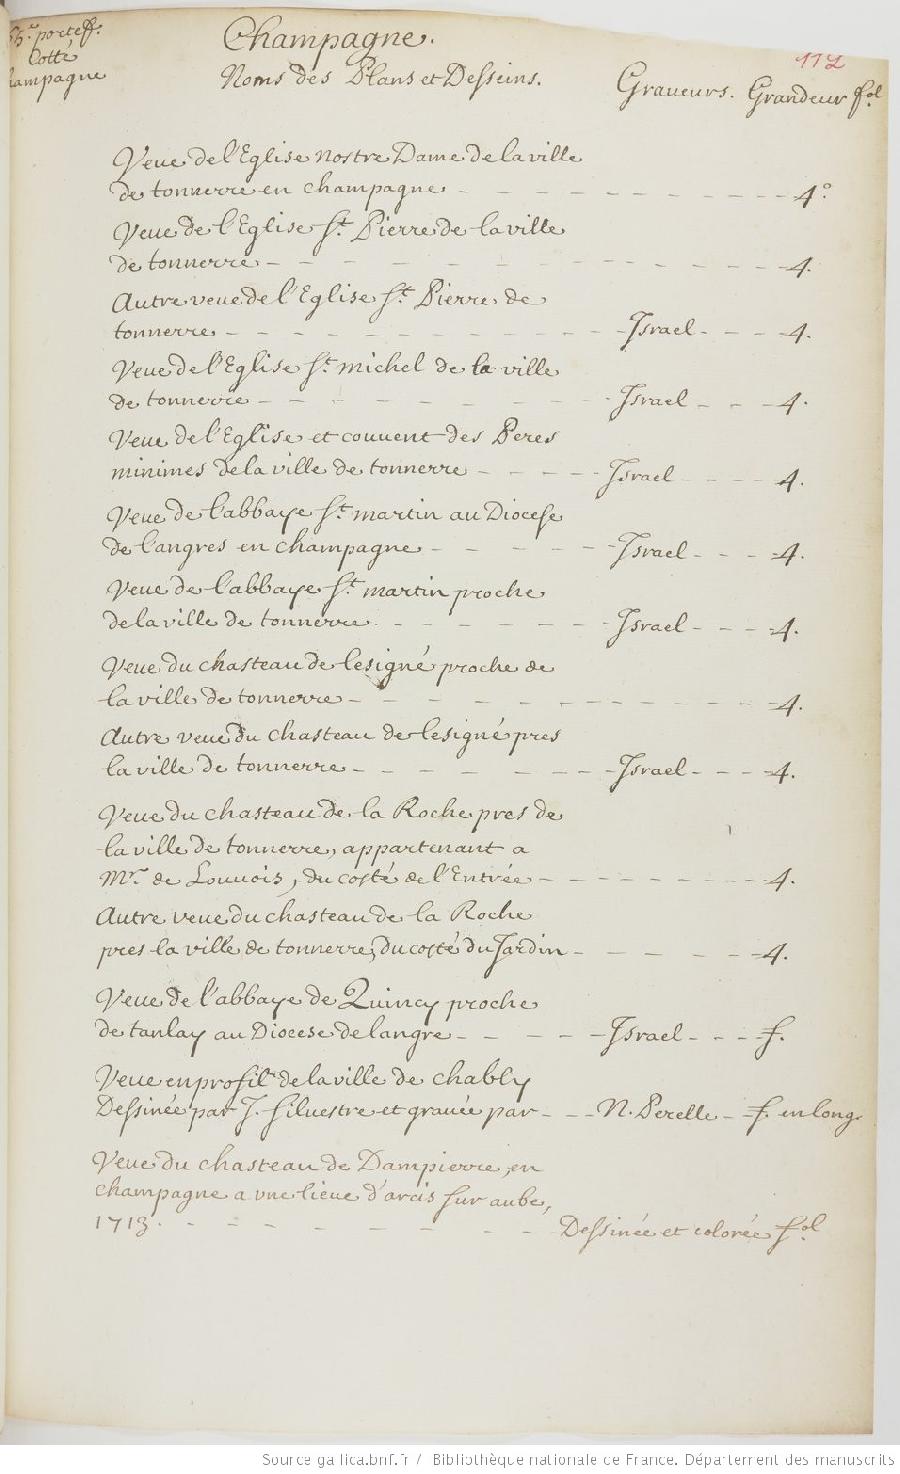 portef.
Cotté
Champagne
Champagne.
112
Noms des Plans et Desseins. Graveurs. Grandeur fol
Veue de l'Eglise nostre Dame de la ville
de tonnerre en champagne - - - - - - - - - 4°.
Veue de l'Eglise St. Pierre de la ville
de tonnerre - - - - - - - - - - - - 4.
Autre veue de l'Eglise St. Pierre de
tonnerre - - - - - - - - - - Israel - - - - 4.
Veue de l'Eglise St. michel de la ville
de tonnerre - - - - - - - - - Israel - - - 4.
Veue de l'Eglise et couvent des Peres
minimes de la ville de tonnerre - - - - Israel - - - - 4.
Veue de l'abbaye St. martin au Diocese
de Langres en champagne - - - - - Israel - - - - 4.
Veue de l'abbaye St. martin proche
de la ville de tonnerre - - - - - - Israel - - - - 4.
Veue du chasteau de lesigné proche de
la ville de tonnerre - - - - - - - - - - - 4.
Autre veue du chasteau de lesigné pres
la ville de tonnerre - - - - - - - Israel - - - 4.
Veue du chasteau de la Roche pres de
la ville de tonnerre, appartenant a
Mr. de Louvois, du costé de l'Entrée - - - - - - - - 4.
Autre veue du chasteau de la Roche
pres la ville de tonnerre, du costé du Jardin - - - - - - 4.
Veue de l'abbaye de Quincy proche
de tanlay au Diocese de langre - - - - - Israel - - - f.
Veue en profil de la ville de chably
Dessinée par J. Silvestre et gravée par - - - N. Perelle - f. en long.
Veue du chasteau de Dampierre, en
champagne a une lieue d'arcis sur aube,
1713. - - - - - - - - - Dessinée et colorée fol
Source gallica.bnf.fr / Bibliothèque nationale de France. Département des manuscrits